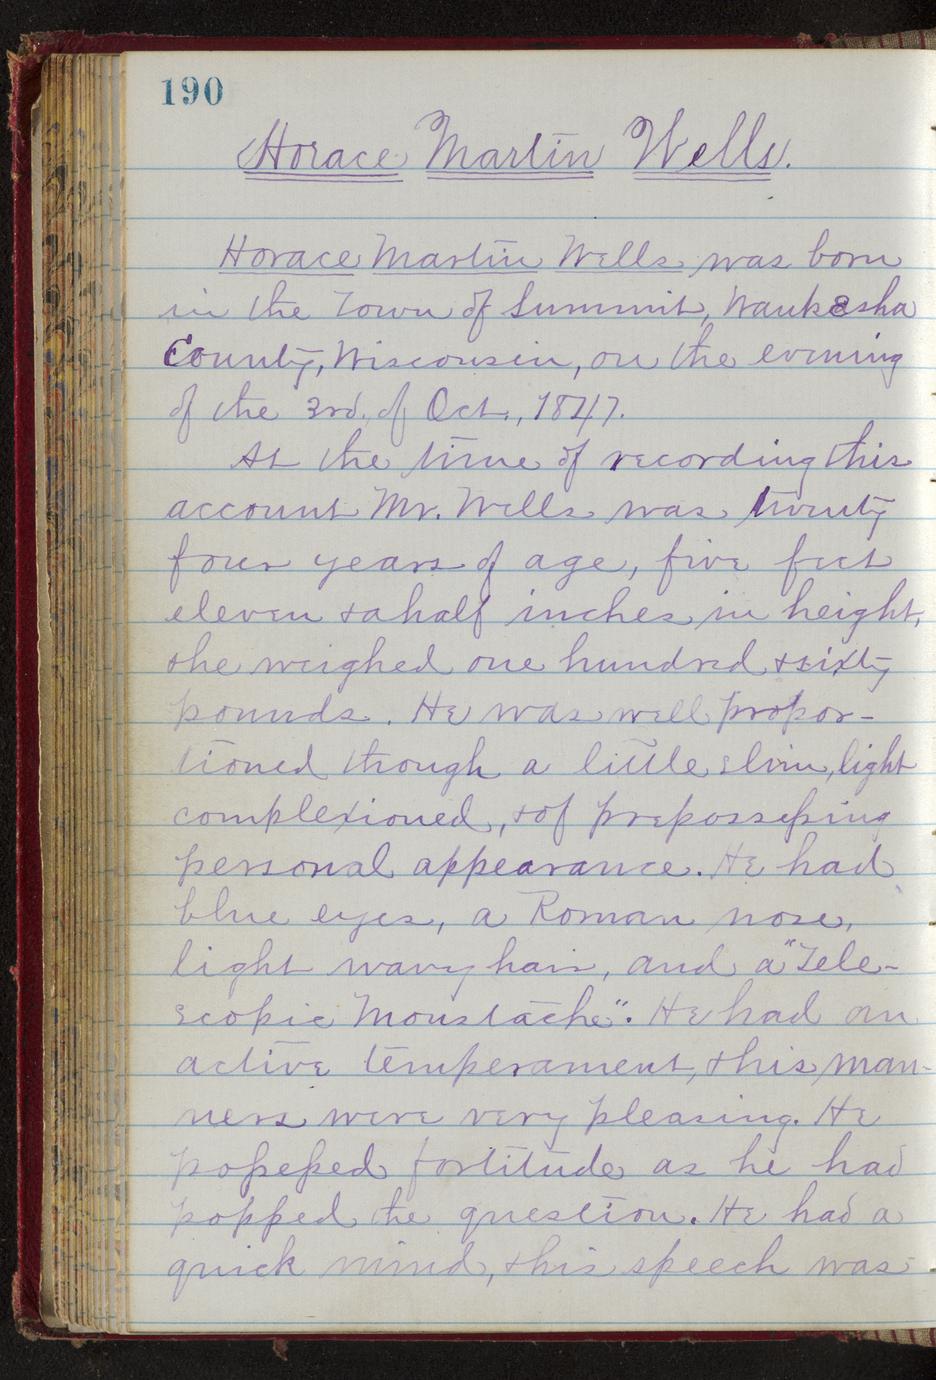 190
Horace Martin Wells.
Horace Martin Wells was born
in the Town of Summit, Waukesha
County, Wisconsin, on the evening
of the 3rd. of Oct., 1847.
At the time of recording this
account Mr. Wells was twenty
four years of age, five feet
eleven & a half inches in height,
& he weighed one hundred & sixty
pounds. He was well propor-
tioned though a little slim, light
complexioned, & of prepossessing
personal appearance. He had
blue eyes, a Roman nose,
light wavy hair, and a "Tele-
scopic Moustache". He had an
active temperament, & his man-
ners were very pleasing. He
possessed fortitude as he had
popped the question. He had a
quick mind, & his speech was